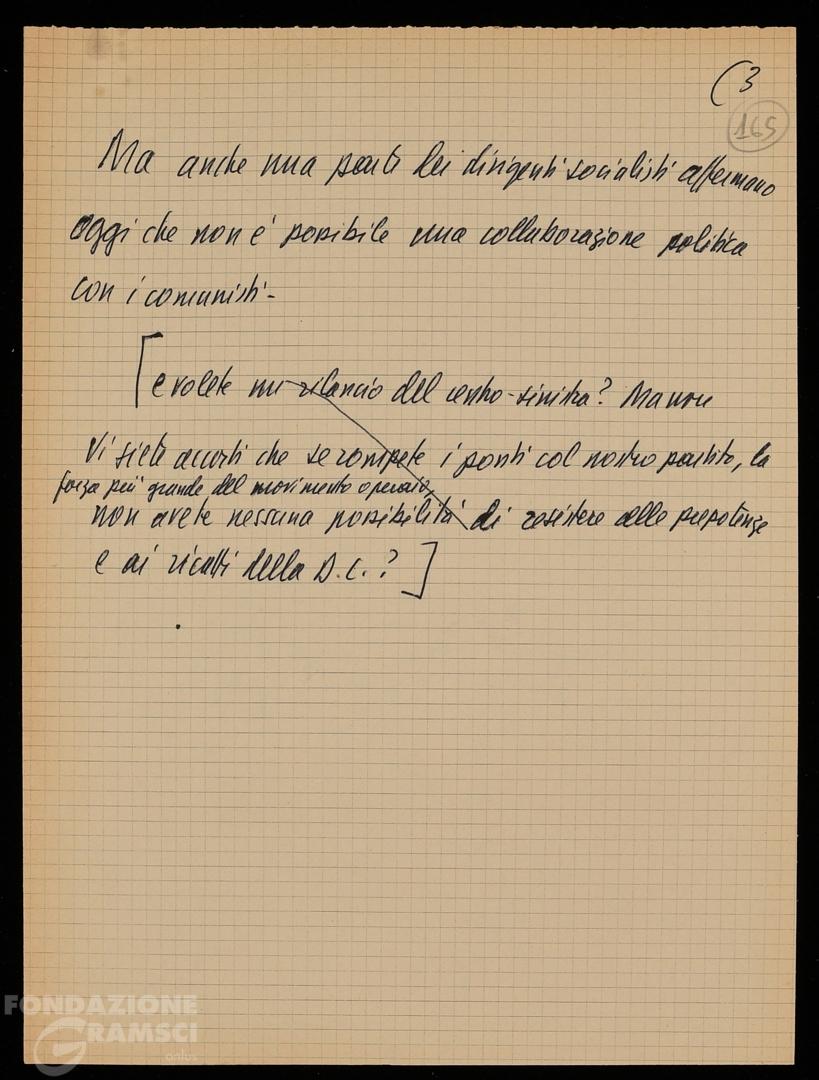 (3
165
Ma anche una parte dei dirigenti socialisti affermano
oggi che non è possibile una collaborazione politica
con i comunisti-
[e volete un rilancio del centro-sinistra? Ma non
vi siete accorti che se rompete i ponti col nostro partito, la
forza più grande del movimento operaio,
non avete nessuna possibilità di resistere alle prepotenze
e ai ricatti della D.C.?]
FONDAZIONE
GRAMSCI
onlus